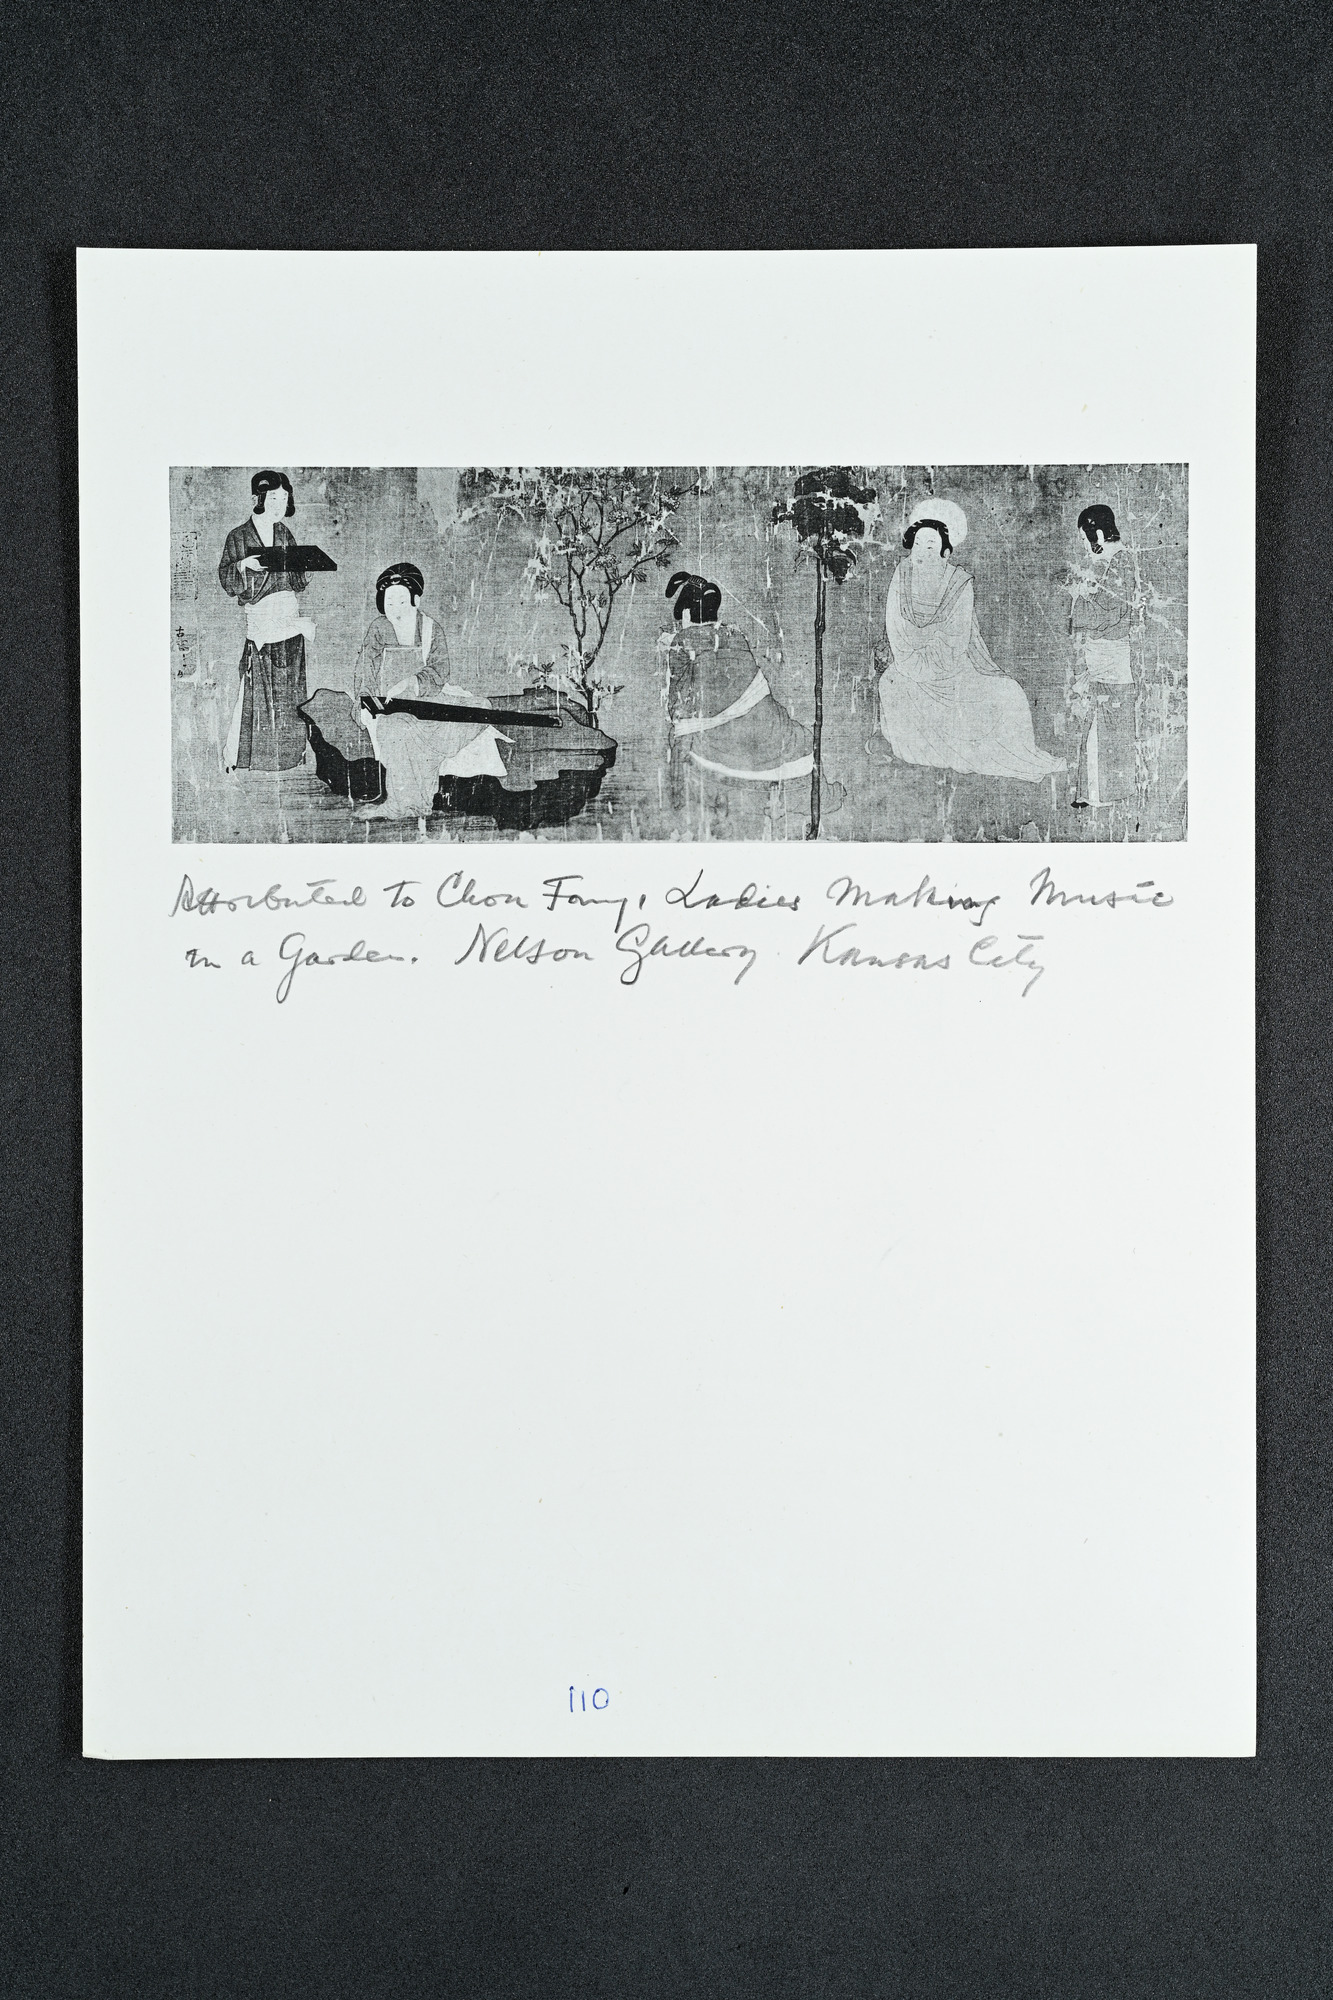 Attributed to Chou Fang, Ladies Making Music
in a Garden. Nelson Gallery Kansas City
110